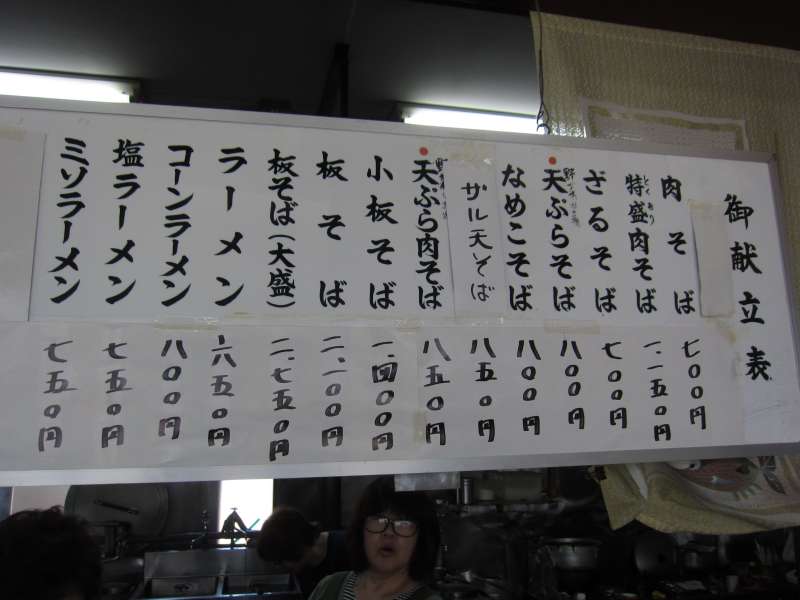 御献立表
肉そば 七〇〇円
特盛肉そば 一、一五〇円
ざるそば 七〇〇円
天ぷらそば 八〇〇円
なめこそば 八〇〇円
ザル天そば 八五〇円
天ぷら肉そば 八五〇円
小板そば 一、四〇〇円
板そば 二、一〇〇円
板そば(大盛) 二、七五〇円
ラーメン 六五〇円
コーンラーメン 八〇〇円
塩ラーメン 七五〇円
ミソラーメン 七五〇円